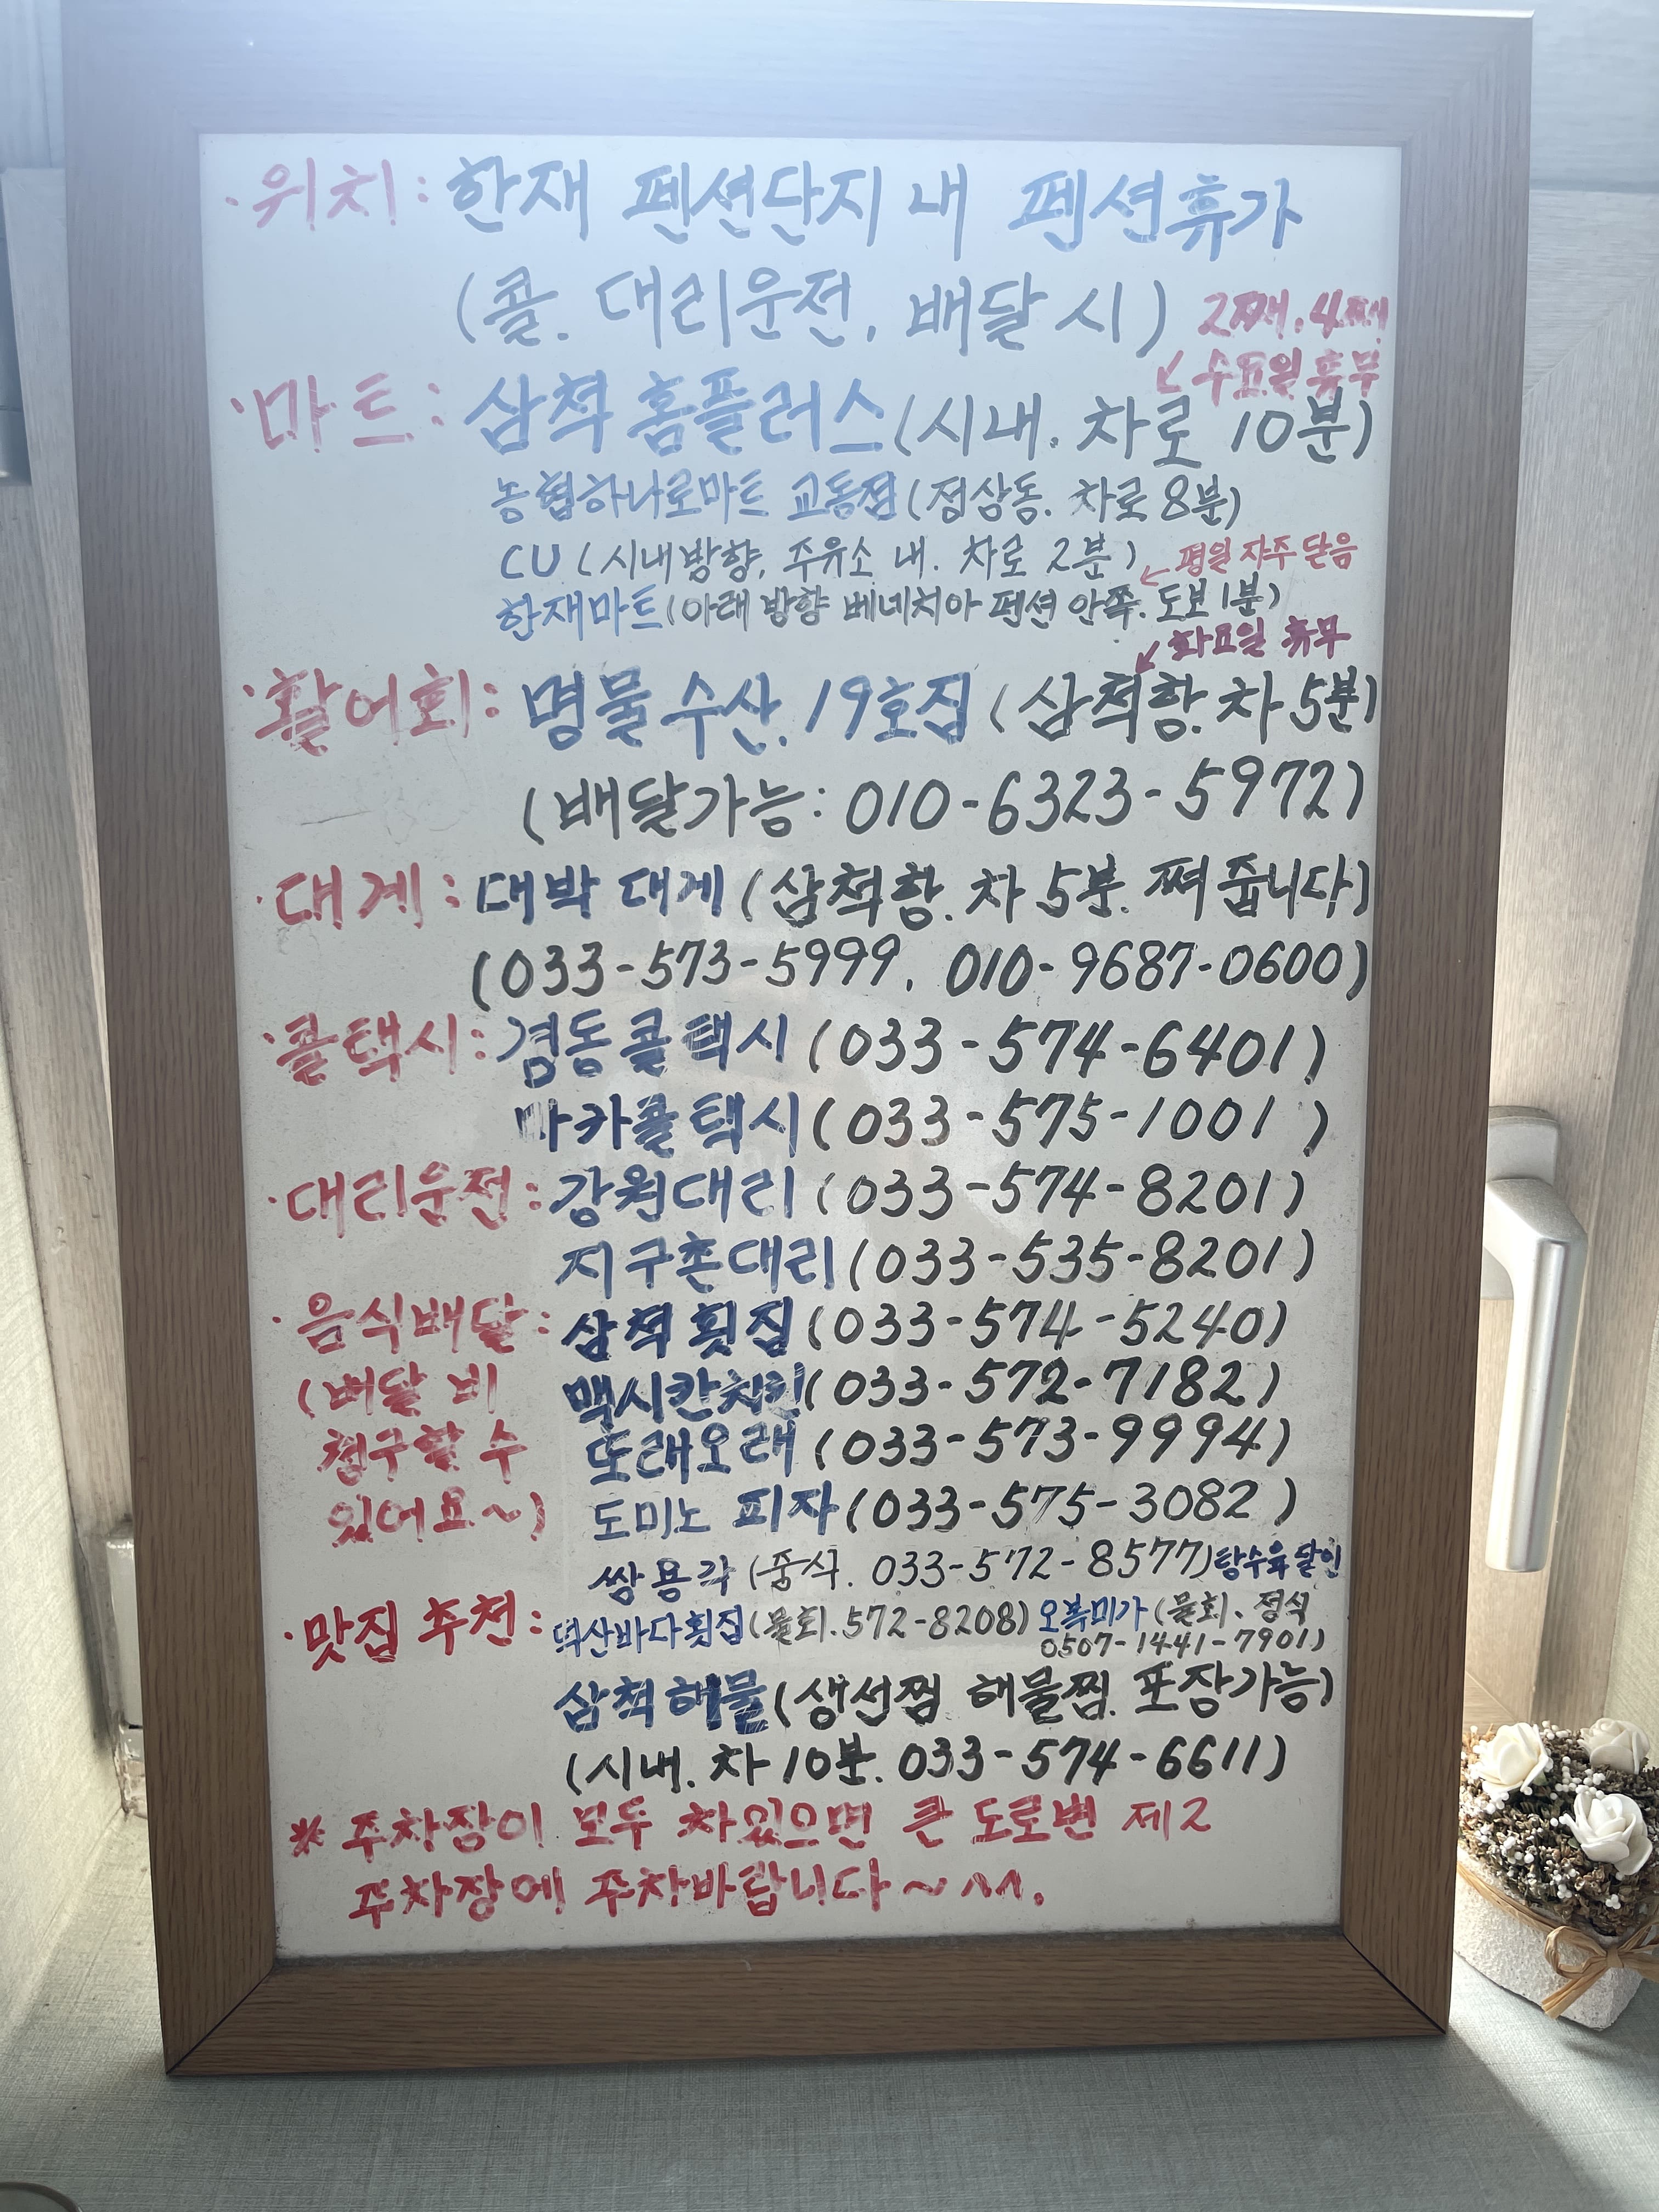 · 위치: 한재 펜션단지 내 펜션휴가
(콜. 대리운전. 배달 시)
2째. 4째
↙ 수요일 휴무
· 마트: 삼척 홈플러스(시내. 차로 10분)
농협하나로마트 교동점(정상동. 차로 8분)
CU (시내방향. 주유소 내. 차로 2분)
← 평일 자주 닫음
한재마트(아래 방향 베네치아 펜션 안쪽. 도보 1분)
↙ 화요일 휴무
· 활어회: 명물수산. 19호집 (삼척항. 차 5분)
(배달가능: 010-6323-5972)
· 대게: 대박 대게 (삼척항. 차 5분. 쪄 줍니다)
(033-573-5999. 010-9687-0600)
· 콜택시: 겸동콜택시 (033-574-6401)
마카콜택시 (033-575-1001)
· 대리운전: 강원대리 (033-574-8201)
지구촌대리 (033-535-8201)
· 음식배달: 삼척횟집 (033-574-5240)
(배달 비 맥시칸치킨 (033-572-7182)
청구할 수 또래오래 (033-573-9994)
있어요~) 도미노 피자 (033-575-3082)
쌍용각 (중식. 033-572-8577) 탕수육달인
· 맛집 추천: 덕산바다횟집(물회. 572-8208) 오복미가 (물회. 정식
0507-1441-7901)
삼척해물(생선찜 해물찜. 포장가능)
(시내. 차 10분. 033-574-6611)
※ 주차장이 모두 차있으면 큰 도로변 제2
주차장에 주차바랍니다~^^.